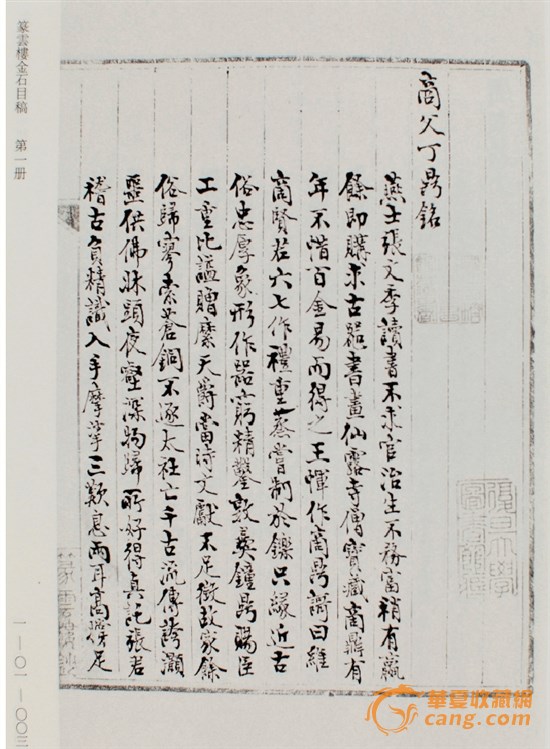 商父丁鼎銘
燕士張文季讀書不求官治生不務富稍有贏
餘即購求古器書畫仙露寺僧寶藏商鼎有
年不惜百金易而得之王惲作商鼎謌曰維
商賢君六七作禮重蒸嘗制於鑠只緣近古
俗忠厚象形作器窮精鑿敦彝鐘鼎賜臣
工重比謚贈縻天爵當時文獻不足徵故家餘
俗歸寥索蒼銅不逐太社亡千古流傳誇灝
噩供佛牀頭夜壑深物歸所好得真託張君
稽古負精識入手摩挲三歎息兩耳高撐足
篆雲樓金石目稿 第一册
一—〇一—〇〇三
華夏收藏網
cang.com